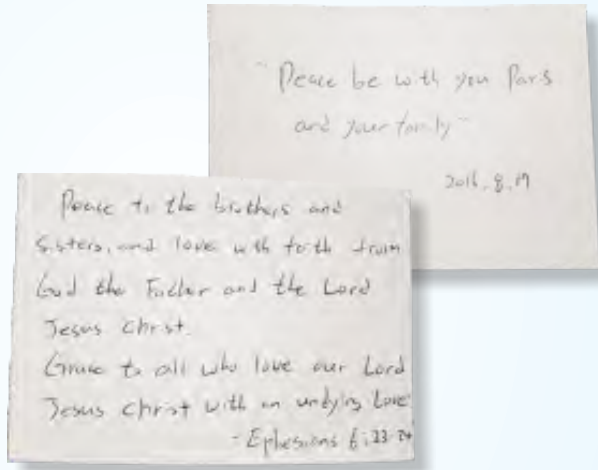 "Peace be with you Paris
and your family"
2016.8.19
Peace to the brothers and
sisters, and love with faith from
God the Father and the Lord
Jesus Christ.
Grace to all who love our Lord
Jesus Christ with an undying love
- Ephesians 6:23-24